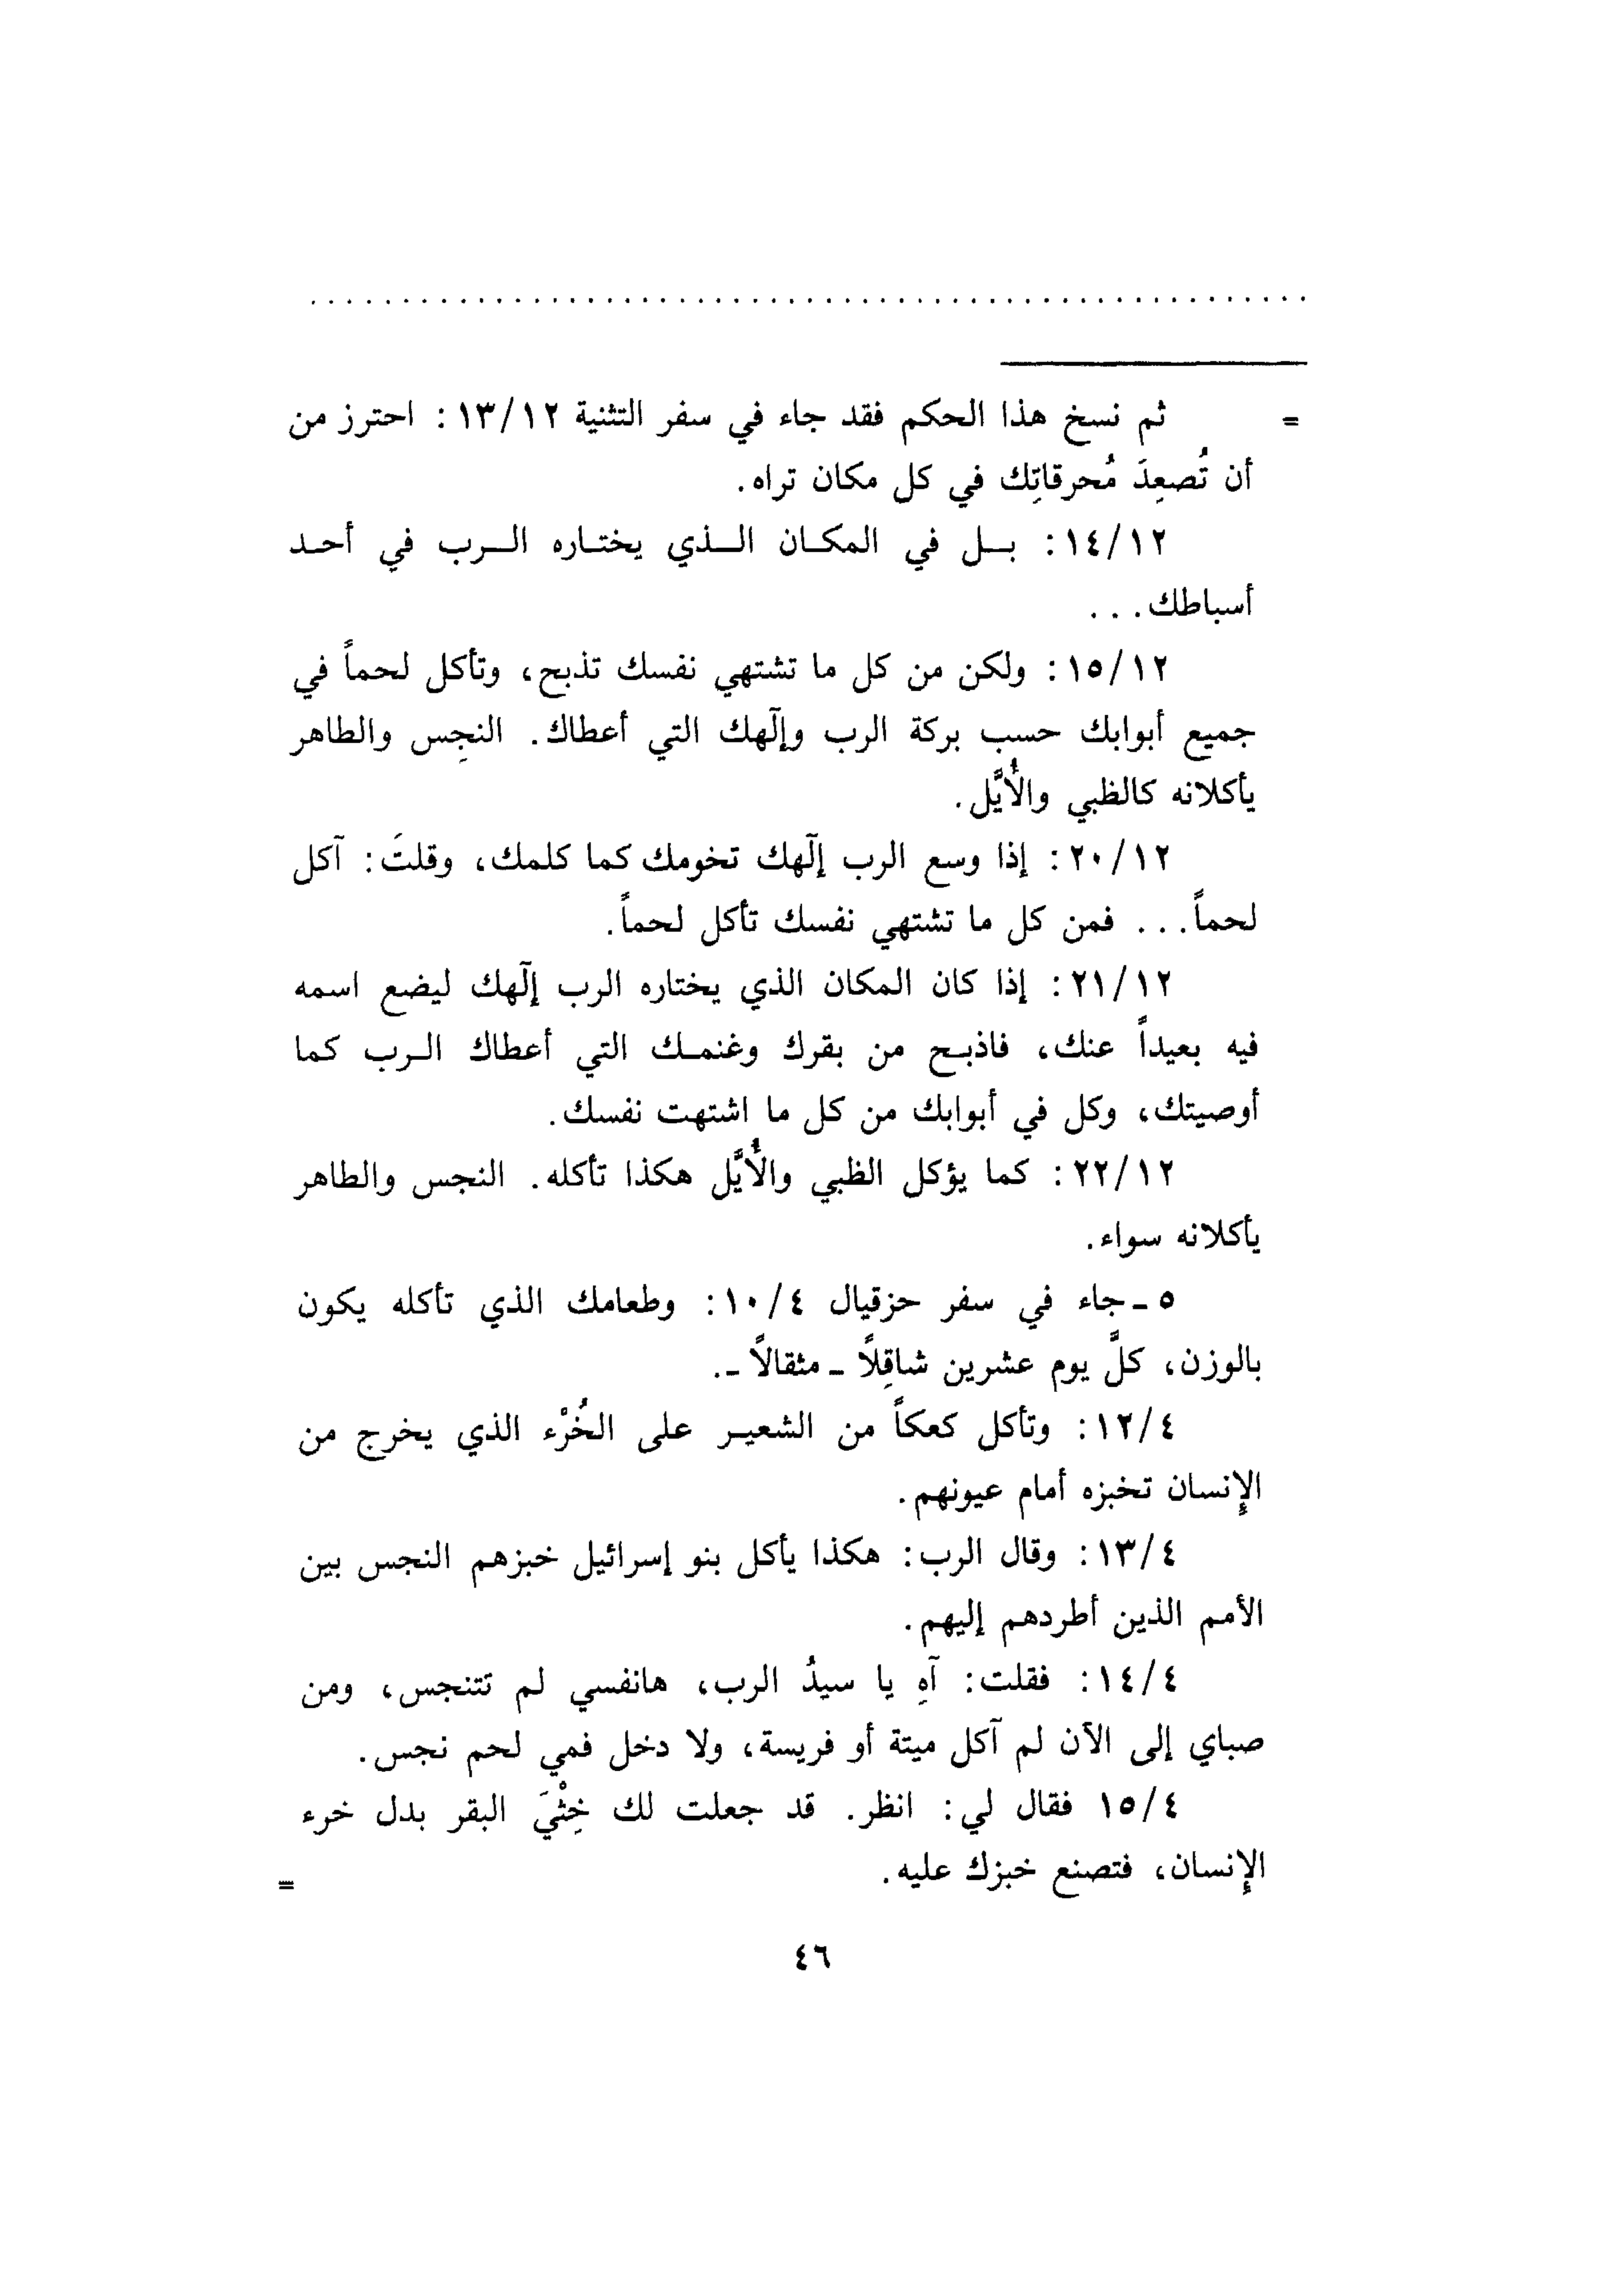 . . . . . . . . . . . . . . . . . . . . . . . . . . . . . . . . . . . . . . . . . . . . . . . . . . . . . .
= ثم نسخ هذا الحكم فقد جاء في سفر التثنية ١٣/١٢: احترز من
أن تُصعِدَ مُحرقاتِك في كل مكان تراه.
١٤/١٢: بل في المكان الذي يختاره الرب في أحد
أسباطك...
١٥/١٢: ولكن من كل ما تشتهي نفسك تذبح، وتأكل لحماً في
جميع أبوابك حسب بركة الرب وإلٓهك التي أعطاك. النجِس والطاهر
يأكلانه كالظبي والأُيَّل.
٢٠/١٢: إذا وسع الرب إلٓهك تخومك كما كلمك، وقلتَ: آكل
لحماً... فمن كل ما تشتهي نفسك تأكل لحماً.
٢١/١٢: إذا كان المكان الذي يختاره الرب إلٓهك ليضع اسمه
فيه بعيداً عنك، فاذبح من بقرك وغنمك التي أعطاك الرب كما
أوصيتك، وكل في أبوابك من كل ما اشتهت نفسك.
٢٢/١٢: كما يؤكل الظبي والأُيَّل هكذا تأكله. النجس والطاهر
يأكلانه سواء.
٥ - جاء في سفر حزقيال ١٠/٤: وطعامك الذي تأكله يكون
بالوزن، كلَّ يوم عشرين شاقِلاً - مثقالاً -.
١٢/٤: وتأكل كعكاً من الشعير على الخُرْء الذي يخرج من
الإنسان تخبزه أمام عيونهم.
١٣/٤: وقال الرب: هكذا يأكل بنو إسرائيل خبزهم النجس بين
الأمم الذين أطردهم إليهم.
١٤/٤: فقلت: آهِ يا سيدُ الرب، هانفسي لم تتنجس، ومن
صباي إلى الآن لم آكل ميتة أو فريسة، ولا دخل فمي لحم نجس.
١٥/٤ فقال لي: انظر. قد جعلت لك خِثْيَ البقر بدل خرء
الإنسان، فتصنع خبزك عليه. =
٤٦